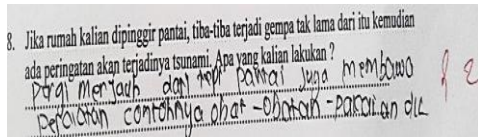 8. Jika rumah kalian dipinggir pantai, tiba-tiba terjadi gempa tak lama dari itu kemudian
ada peringatan akan terjadinya tsunami. Apa yang kalian lakukan ?
Pergi menjauh dari tepi pantai juga membawa
Peralatan contohnya obat-obatan-pakaian dll
2